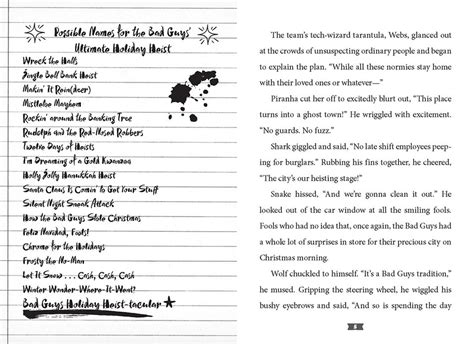 Possible Names for the Bad Guys'
Ultimate Holiday Heist
Wreck the Halls
Jingle Bell Bank Heist
Makin' It Rein(deer)
Mistletoe Mayhem
Rockin' around the Banking Tree
Rudolph and the Red-Nosed Robbers
Twelve Days of Heists
I'm Dreaming of a Gold Kwanzaa
Holly Jolly Hanukkah Heist
Santa Claus Is Comin' to Get Your Stuff
Silent Night Sneak Attack
How the Bad Guys Stole Christmas
Feliz Navidad, Fools!
Chrome for the Holidays
Frosty the No-Man
Let It Snow . . . Cash, Cash, Cash
Winter Wonder-Where-It-Went?
Bad Guys Holiday Heist-tacular
The team's tech-wizard tarantula, Webs, glanced out
at the crowds of unsuspecting ordinary people and began
to explain the plan. “While all these normies stay home
with their loved ones or whatever—”
Piranha cut her off to excitedly blurt out, “This place
turns into a ghost town!” He wriggled with excitement.
“No guards. No fuzz.”
Shark giggled and said, “No late shift employees peep-
ing for burglars.” Rubbing his fins together, he cheered,
“The city's our heisting stage!”
Snake hissed, “And we're gonna clean it out.” He
looked out of the car window at all the smiling fools.
Fools who had no idea that, once again, the Bad Guys had
a whole lot of surprises in store for their precious city on
Christmas morning.
Wolf chuckled to himself. “It's a Bad Guys tradition,”
he mused. Gripping the steering wheel, he wiggled his
bushy eyebrows and said, “And so is spending the day